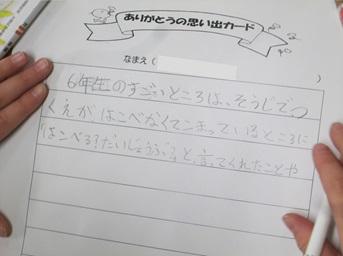 ありがとうの思い出カード
なまえ（　　　）
6年生のすごいところは、そうじでつ
くえがはこべなくてこまっているところに
はこべる？だいじょうぶ？と、言ってくれたことや